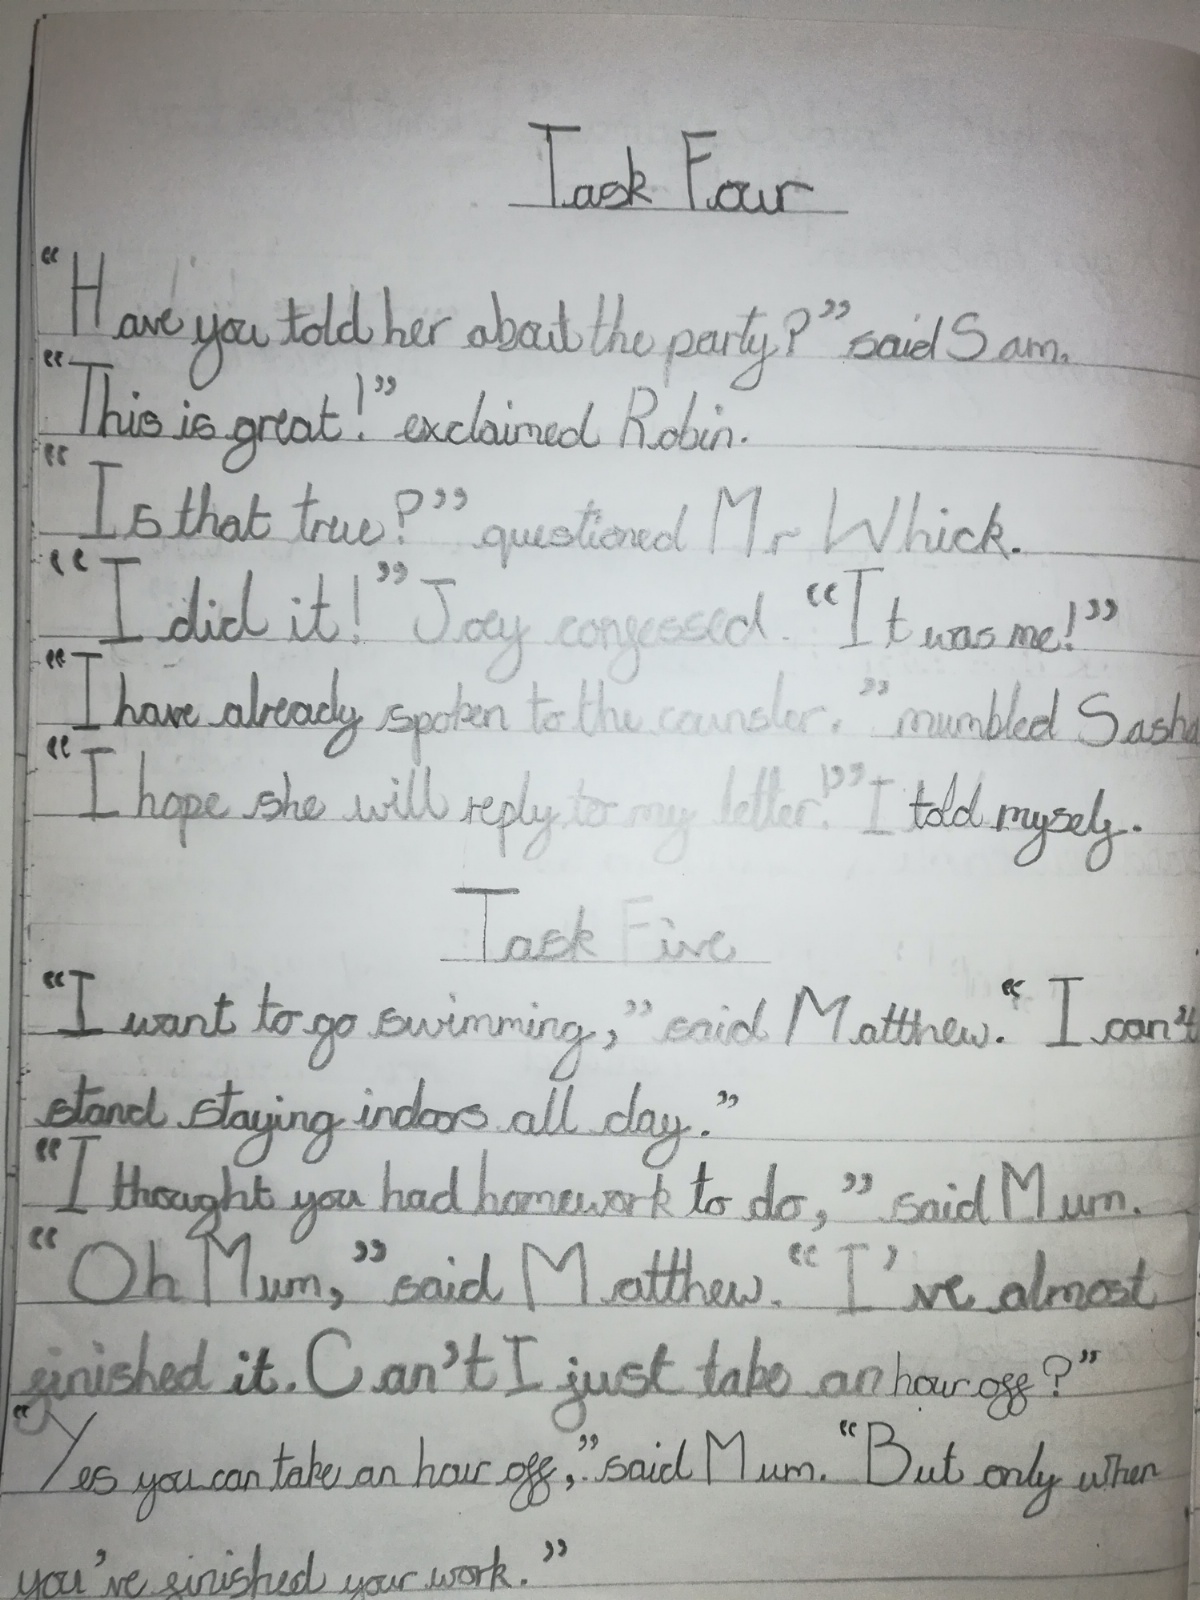 Task Four
“Have you told her about the party?” said Sam.
“This is great!” exclaimed Robin.
“Is that true?” questioned Mr Whick.
“I did it!” Joey confessed. “It was me!”
“I have already spoken to the counsler.” mumbled Sasha
“I hope she will reply to my letter!” I told myself.
Task Five
“I want to go swimming,” said Matthew. “I can't
stand staying indoors all day.”
“I thought you had homework to do,” said Mum.
“Oh Mum,” said Matthew. “I've almost
finished it. Can't I just take an hour off?”
“Yes you can take an hour off,” said Mum. “But only when
you've finished your work.”